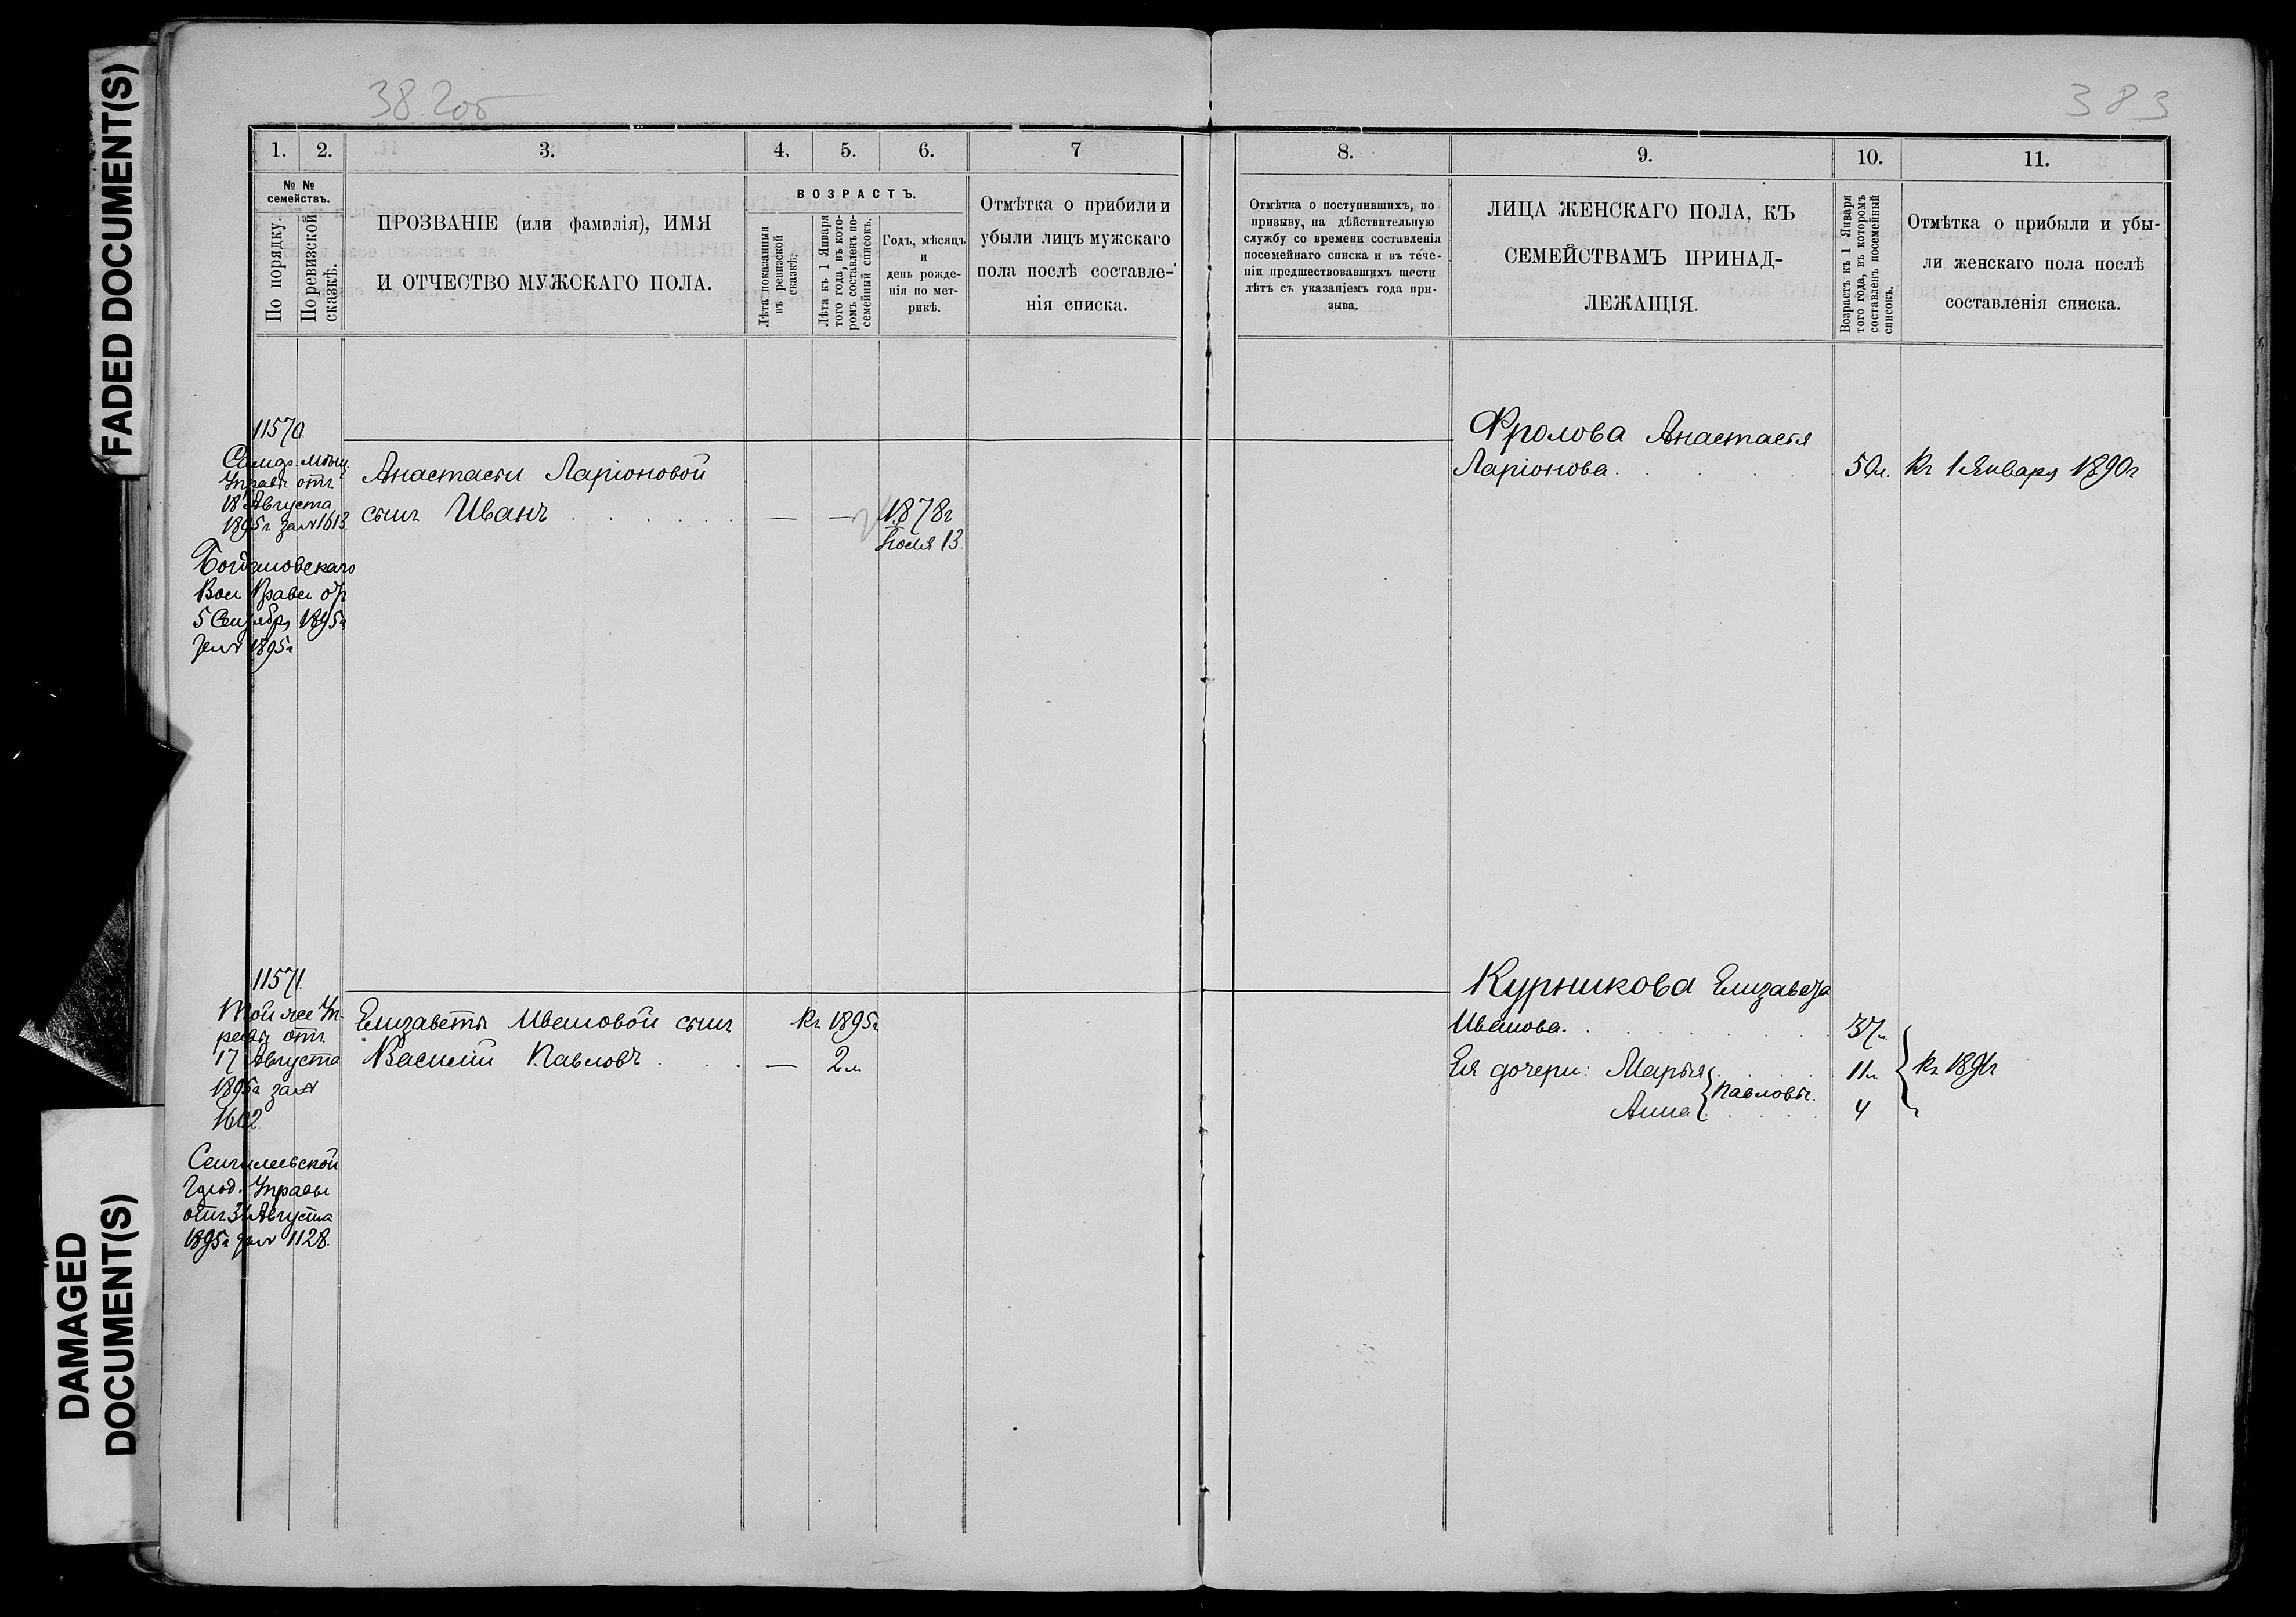 FADED DOCUMENT(S)
DAMAGED
DOCUMENT(S)
382об
383
1. 2. 3. 4. 5. 6. 7
№ №
семействъ.
По порядку.
По ревизской
сказкѣ.
ПРОЗВАНІЕ (или фамилія), ИМЯ
И ОТЧЕСТВО МУЖСКАГО ПОЛА.
ВОЗРАСТЪ.
Лѣта показанныя
въ ревизской
сказкѣ.
Лѣта къ 1 Января
того года, въ кото-
ромъ составленъ по-
семейный списокъ.
Годъ, мѣсяцъ
и
день рожде-
нія по мет-
рикѣ.
Отмѣтка о прибыли и
убыли лицъ мужскаго
пола послѣ составле-
нія списка.
8. 9. 10. 11.
Отмѣтка о поступившихъ, по
призыву, на дѣйствительную
службу со времени составленія
посемейнаго списка и въ тече-
ніи предшествовавшихъ шести
лѣтъ съ указаніемъ года при-
зыва.
ЛИЦА ЖЕНСКАГО ПОЛА, КЪ
СЕМЕЙСТВАМЪ ПРИНАД-
ЛЕЖАЩІЯ.
Возрастъ къ 1 Января
того года, въ которомъ
составленъ посемейный
списокъ.
Отмѣтка о прибыли и убы-
ли женскаго пола послѣ
составленія списка.
11570.
Самар. мѣщ.
Управы отъ
18 Августа
1895г за № 1613.
Богдановскаго
Вол Правл от
5 Сентября 1895г
за № 1895г
Анастасіи Ларіоновой
сынъ Иванъ — — 1878г
Іюля 13.
Фролова Анастасія
Ларіонова. 50л. Къ 1 Января 1890г
11571.
Той же Уп-
равы отъ
17 Августа
1895г за №
1602.
Сенгилеевской
Город. Управы
отъ 31 Августа
1895г за № 1128.
Елизаветы Ивановой сынъ Къ 1895г
Василій Павловъ — 2л
Курникова Елизавета
Иванова. 37л.
Ея дочери: Марья 11л Къ 1891г
Павловы.
Анна 4